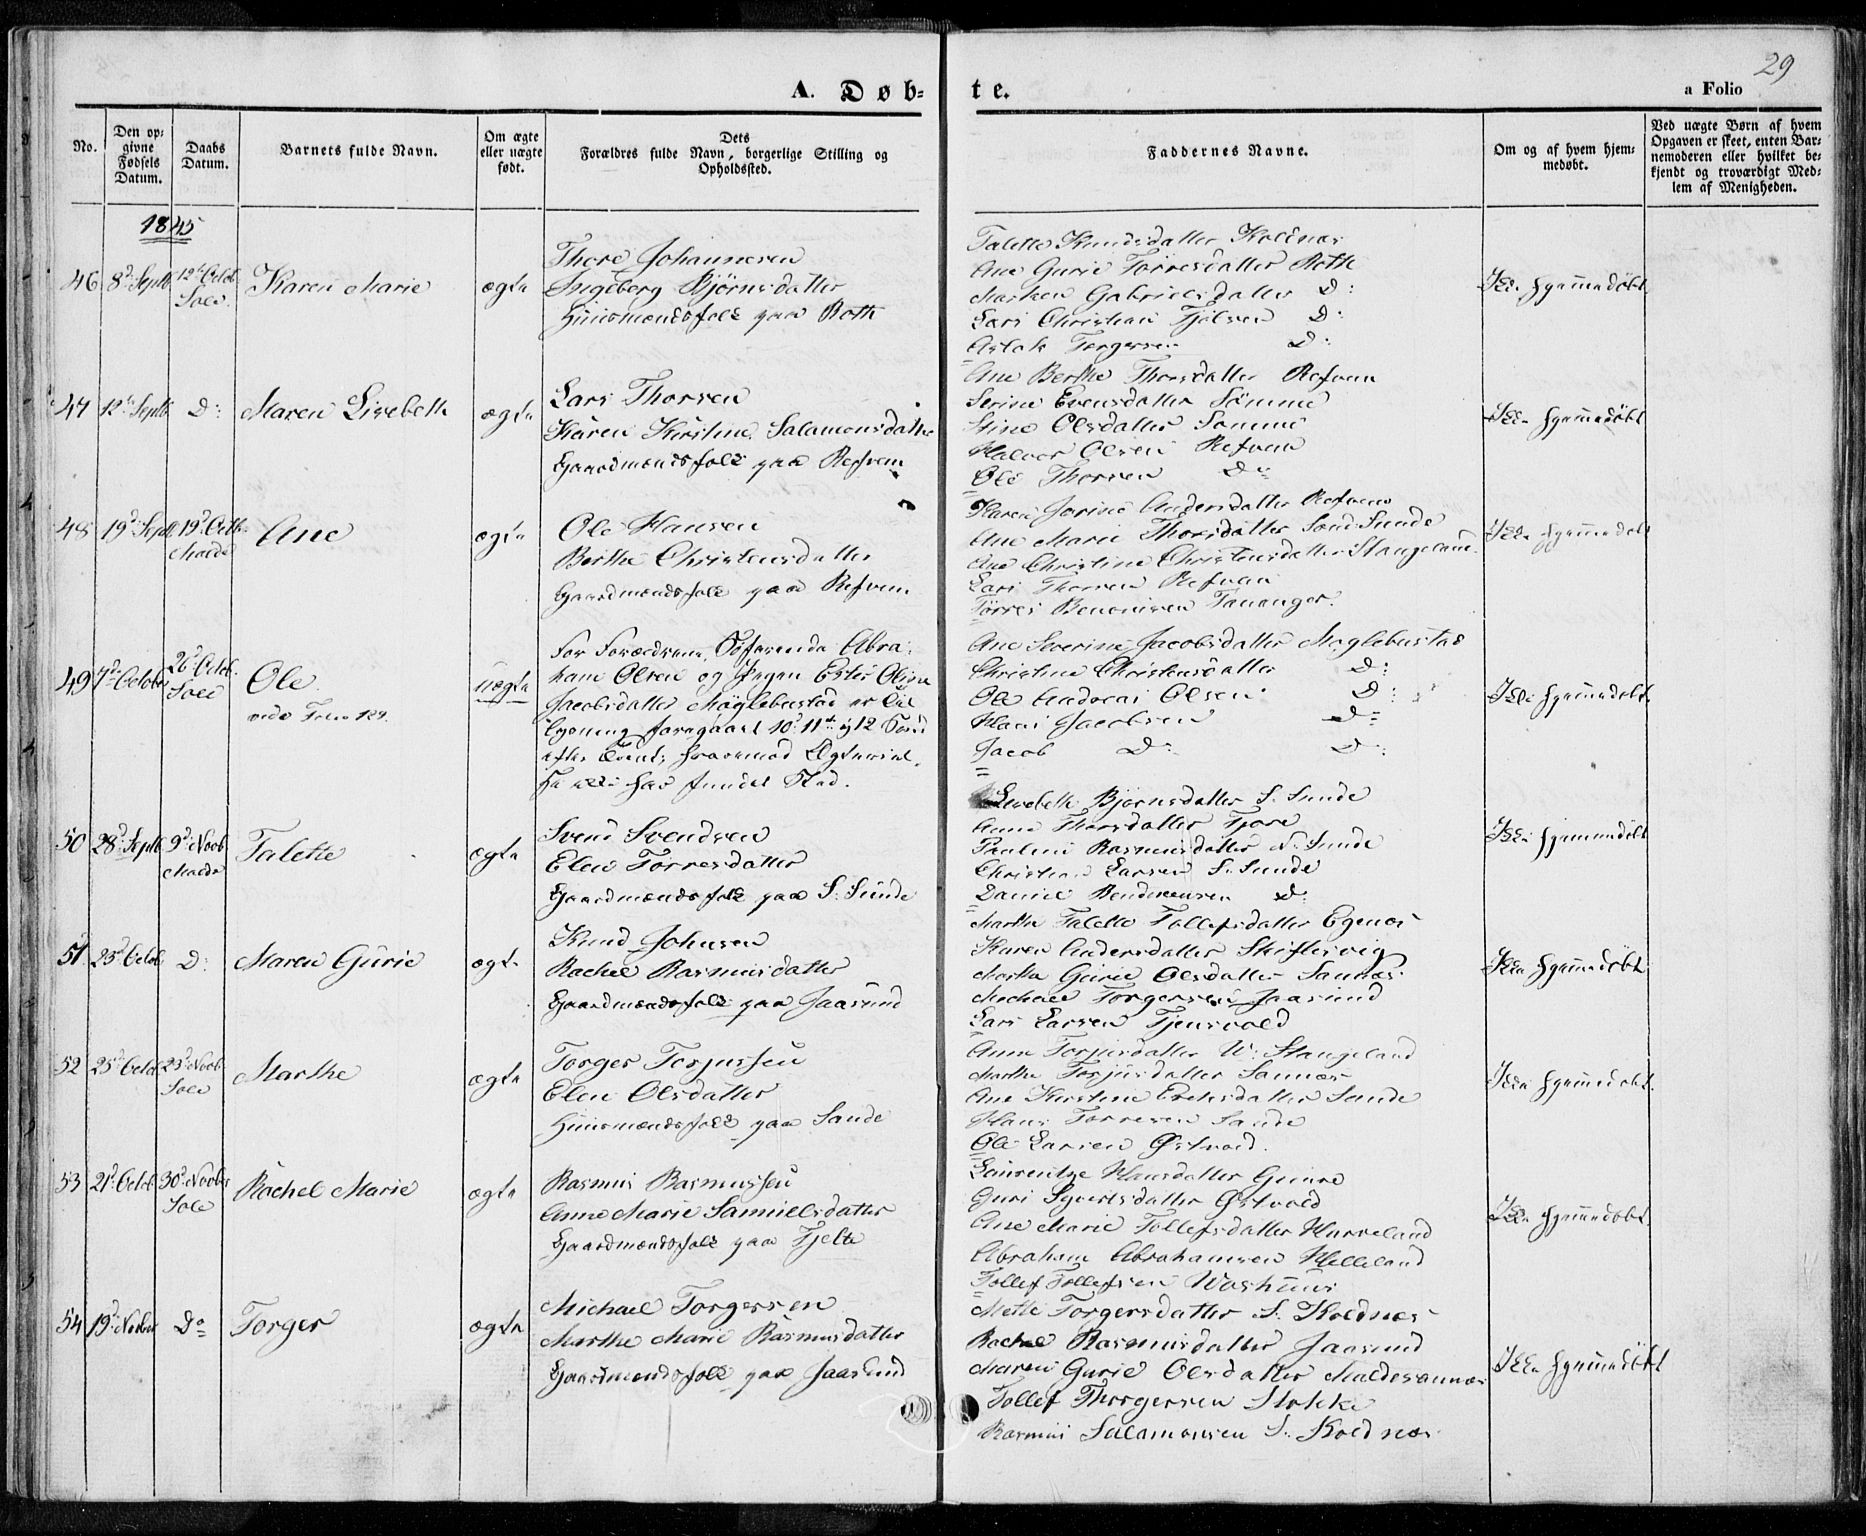 29
A. Døb-
te.
a Folio
No.
Den op-
givne
Fødsels
Datum.
Daabs
Datum.
Barnets fulde Navn.
Om ægte
eller uægte
født.
Dets
Forældres fulde Navn, borgerlige Stilling og
Opholdssted.
Faddernes Navne.
Om og af hvem hjem-
medøbt.
Ved uægte Børn af hvem
Opgaven er skeet, enten Bar-
nemoderen eller hvilket be-
kjendt og troværdigt Med-
lem af Menigheden.
1845
46 8d Septb 12te Octob. Sole Karen Marie ægte
Thore Johannesen
Ingeborg Bjørnsdatter
Huusmandsfolk paa Roth
Talette Knudsdatter Kolnes
Ane Gurie Tørresdatter Roth
Marthen Gabrielsdatter D:
Lars Christian D:
Aslak Torgersen D:
Ikke hjemmedøbt
47 12te Septb. D: Maren Lisebeth ægte
Lars Thorsen
Karen Kirstine Salamonsdatter
Gaardmandsfolk paa Refvem
Ane Berthe Thorsdatter Refvem
Serine Evensdatter Sømme
Stine Olsdatter Sømme
Halvor Olsen Refvem
Ole Thorsen Do
Ikke hjemmedøbt
48 19d Septb 19d Octb. Malde Ane ægte
Ole Hansen
Berthe Christensdatter
Gaardmandsfolk paa Refvem
Karen Jorine Andersdatter Refvem
Ane Marie Thorsdatter Sønd Sunde
Ane Christine Christensdatter Stangeland
Lars Thorsen Refvem
Tørres Benonisen Tananger.
Ikke hjemmedøbt
49 7de October 26d Octob. Sole Ole uægte
vide Folio 129.
For Forældrene, Søfarende Abra-
ham Olsen og Pigen Ester Oline
Jacobsdatter Møglebustad er Lil
lysning foregaaet 10d 11te & 12 Sønd
efter Trinit, hvorimod Ægtevi
har fundet Sted.
Ane Severine Jacobsdatter Møglebustad
Christine Christensdatter D:
Ole Andreas Olsen D:
Hans Jacobsen D:
Jacob D: D:
Ikke hjemmedøbt
50 28d Septb. 9d Novb. Malde Talette ægte
Svend Svendsen
Elen Tørresdatter
Gaardmandsfolk paa S: Sunde
Lisebeth Bjørnsdatter S. Sunde
Anne Thorsdatter Tjore
Pauline Rasmusdatter N. Sunde
Christian Larsen S. Sunde
Daniel D:
Ikke hjemmedøbt
51 23d Octob. D: Maren Gurie ægte
Knud Johnsen
Rachel Rasmusdatter
Gaardmandsfolk paa Jaasund
Marthe Talette Tollefsdatter Egenæs
Karen Andersdatter Skiftesvig
Marthe Gurie Olsdatter Sannæs
Michael Torgersen Jaasund
Lars Larsen Tjensvold
Ikke hjemmedøbt
52 25d Octob. 23d Novb. Sole Marthe ægte
Torger Torjussen
Elen Olsdatter
Huusmandsfolk paa Sande
Anne Torjusdatter W. Stangeland
Marthe Torjusdatter Sannæs
Ane Kirstine Sande
Hans Torresen Sande
Ole Larsen Østvold.
Ikke hjemmedøbt.
53 21d Octob. 30d Novbr Sole Rachel Marie ægte
Rasmus Rasmussen
Anne Marie Samuelsdatter
Gaardmandsfolk paa Tjelte
Laurentze Hansdatter Gimre
Guri Syvertsdatter Østvold
Ane Marie Tollefsdatter Harveland
Abraham Abrahamsen Helleland
Tollef Tollefsen Washuus
Ikke hjemmedøbt.
54 19d Novbr Do Torger ægte
Michael Torgersen
Marthe Marie Rasmusdatter
Gaardmandsfolk paa Jaasund
Mette Torgersdatter S. Koldnes
Rachel Rasmusdatter Jaasund
Maren Gurie Olsdatter Maldesannes
Tollef Thorgersen Stokke
Rasmus Salamonsen S. Koldnæs
Ikke hjemmedøbt